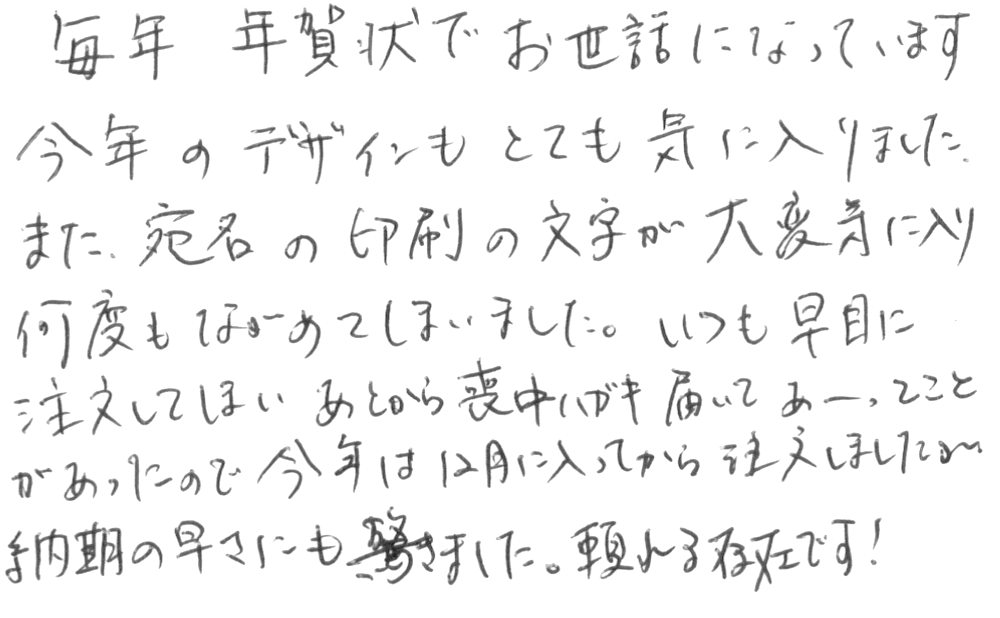 毎年 年賀状でお世話になっています
今年のデザインもとても気に入りました。
また、宛名の印刷の文字が大変気に入り
何度もながめてしまいました。いつも早目に
注文してしまい あとから喪中ハガキ届いて あーってこと
があったので今年は12月に入ってから注文しましたが
納期の早さにも驚きました。頼れる存在です!